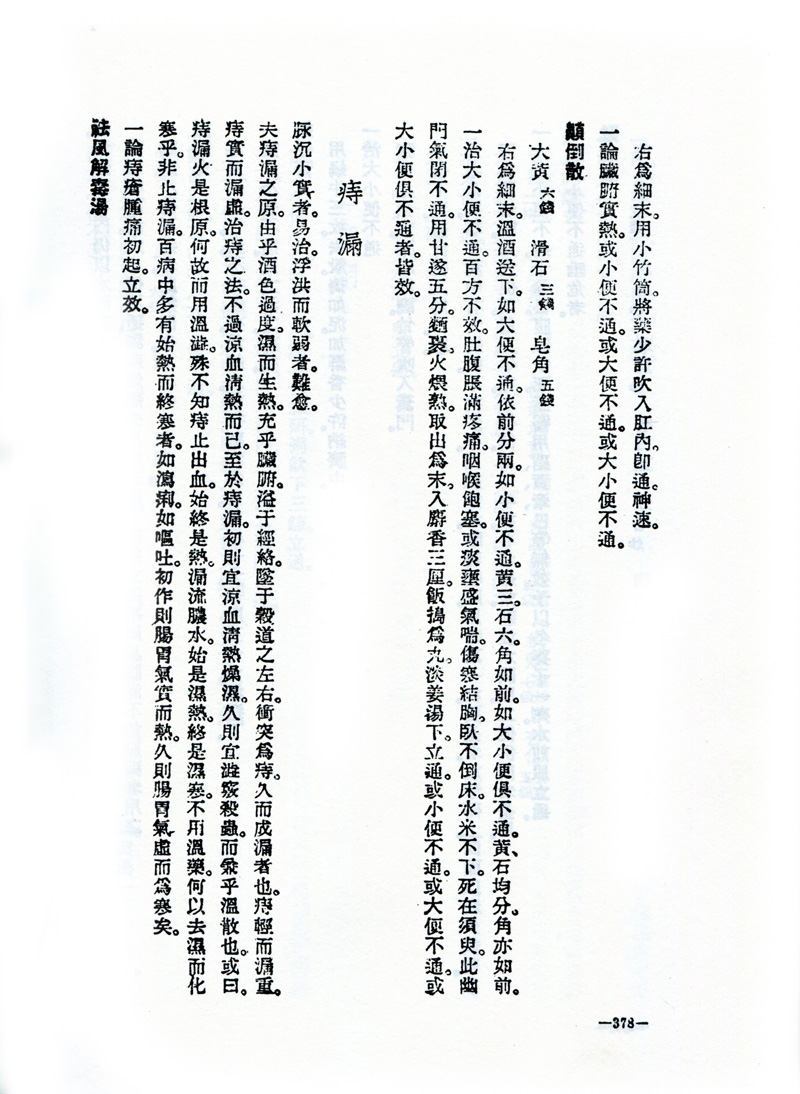 右為細末。用小竹筒。將藥少許吹入肛內。卽通。神速。
一論臟腑實熱。或小便不通。或大便不通。或大小便不通。
顚倒散
大黃六錢　滑石三錢　皂角五錢
右為細末。溫酒送下。如大便不通。依前分兩。如小便不通。黃三。石六。角如前。如大小便俱不通。黃、石均分。角亦如前。
一治大小便不通。百方不效。肚腹脹滿疼痛。咽喉飽塞。或淡壅盛氣喘。傷寒結胸。臥不倒床。水米不下。死在須臾。此幽
門氣閉不通。用甘遂五分。麵裹。火煨熟。取出為末。入麝香三厘。飯搗為丸。淡姜湯下。立通。或小便不通。或大便不通。或
大小便俱不通者。皆效。
痔漏
脉沉小實者。易治。浮洪而軟弱者。難愈。
夫痔漏之原。由乎酒色過度。濕而生熱。充乎臟腑。溢于經絡。墜于穀道之左右。衝突為痔。久而成漏者也。痔輕而漏重。
痔實而漏虛。治痔之法。不過涼血清熱而已。至於痔漏。初則宜涼血清熱燥濕。久則宜澁竅殺蟲。而兼乎溫散也。或曰。
痔漏火是根原。何故而用溫澁。殊不知痔止出血。始終是熱。漏流膿水。始是濕熱。終是濕寒。不用溫藥。何以去濕而化
寒乎。非止痔漏。百病中多有始熱而終寒者。如瀉痢。如嘔吐。初作則腸胃氣實而熱。久則腸胃氣虛而為寒矣。
一論痔瘡腫痛初起。立效。
祛風解毒湯
—378—